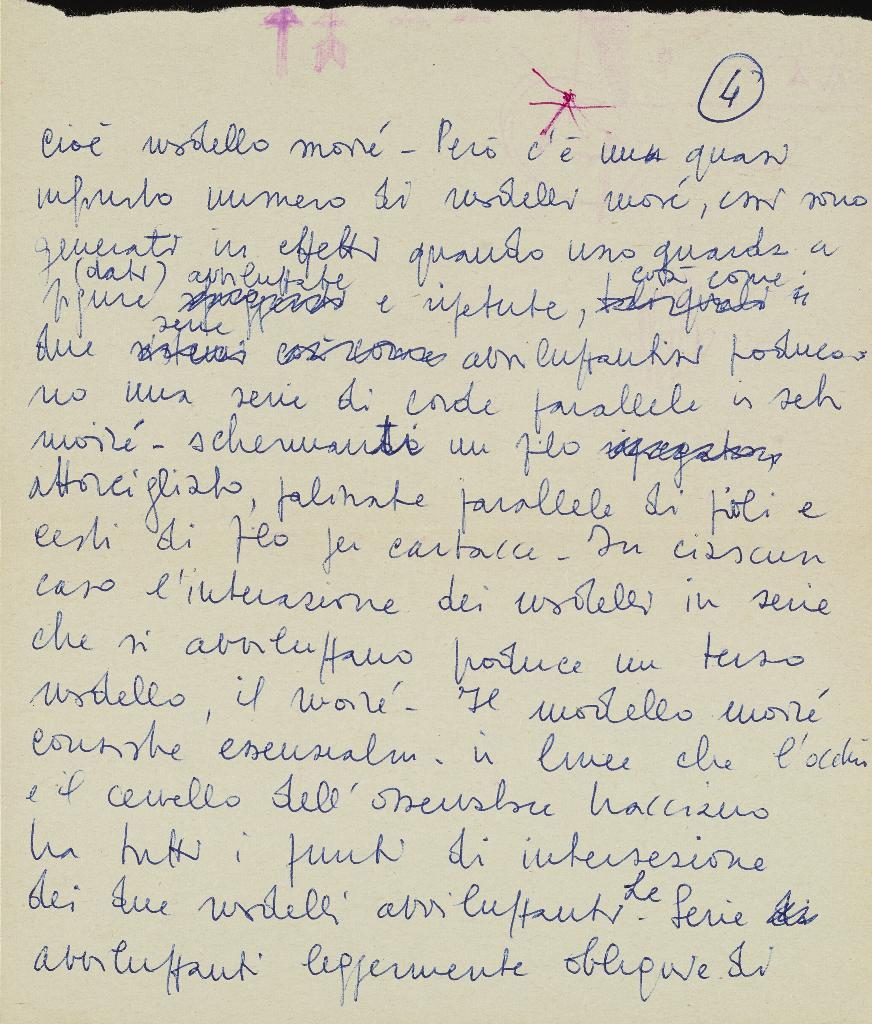 4
cioè modello moiré - Però c'è una quasi
infinito numero di modelli moiré, essi sono
generati in effetti quando uno guarda a
(dati) avviluppate così come
figure e ripetute, i
serie
due avviluppantisi produco-
no una serie di corde parallele in seta
moiré - schermanti un filo
attorcigliato, palinate parallele di pioli e
cesti di filo per cartacce - In ciascun
caso l'interazione dei modelli in serie
che si avviluppano produce un terzo
modello, il moiré - Il modello moiré
consiste essenzialm. in linee che l'occhio
e il cervello dell'osservatore tracciano
tra tutti i punti di intersezione
dei due modelli avviluppanti - Le Serie
avviluppanti leggermente oblique di